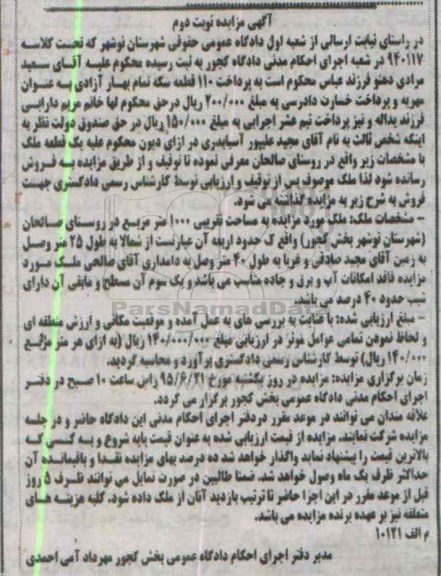 آگهی مزایده نوبت دوم
در راستای نیابت ارسالی از شعبه اول دادگاه عمومی حقوقی شهرستان نوشهر که تحت کلاسه
۹۴۰۱۱۷ در شعبه اجرای احکام مدنی دادگاه کجور به ثبت رسیده محکوم علیه آقای سعید
مرادی دهنو فرزند عباس محکوم است به پرداخت ۱۱۰ قطعه سکه تمام بهار آزادی به عنوان
مهریه و پرداخت خسارت دادرسی به مبلغ ۲۰۰/۰۰۰ ریال در حق محکوم لها خانم مریم دارابی
فرزند یداله و نیز پرداخت نیم عشر اجرایی به مبلغ ۱۵۰/۰۰۰ ریال در حق صندوق دولت نظر به
اینکه شخص ثالث به نام آقای مجید علیپور آسیابدری در ازای دیون محکوم علیه یک قطعه ملک
با مشخصات زیر واقع در روستای صالحان معرفی نموده تا توقیف و از طریق مزایده به فروش
رسانده شود لذا ملک موصوف پس از توقیف و ارزیابی توسط کارشناس رسمی دادگستری جهت
فروش به شرح زیر به مزایده گذاشته می شود.
- مشخصات ملک: ملک مورد مزایده به مساحت تقریبی ۱۰۰۰ متر مربع در روستای صالحان
(شهرستان نوشهر بخش کجور) واقع که حدود اربعه آن عبارتست از شمالا به طول ۲۵ متر وصل
به زمین آقای مجید صادقی و غربا به طول ۴۰ متر وصل به دامداری آقای صالحی ملک مورد
مزایده فاقد امکانات آب و برق و جاده مناسب می باشد و یک سوم آن مسطح و مابقی آن دارای
شیب حدود ۴۰ درصد می باشد.
- مبلغ ارزیابی شده: با عنایت به بررسی های به عمل آمده و موقعیت مکانی و ارزش منطقه ای
و لحاظ نمودن تمامی عوامل موثر در ارزیابی مبلغ ۱۴۰/۰۰۰/۰۰۰ ریال (به ازای هر متر مربع
۱۴۰/۰۰۰ ریال) توسط کارشناس رسمی دادگستری برآورد و محاسبه گردید.
زمان برگزاری مزایده: مزایده در روز یکشنبه مورخ ۹۵/۶/۲۱ راس ساعت ۱۰ صبح در دفتر
اجرای احکام مدنی دادگاه عمومی بخش کجور برگزار می گردد.
علاقه مندان می توانند در موعد مقرر در دفتر اجرای احکام مدنی این دادگاه حاضر و در جلسه
مزایده شرکت نمایند. مزایده از قیمت ارزیابی شده به عنوان قیمت پایه شروع و به کسی که
بالاترین قیمت را پیشنهاد نماید واگذار خواهد شد ده درصد بهای مزایده نقدا و باقیمانده آن
حداکثر ظرف یک ماه وصول خواهد شد. ضمنا طالبین در صورت تمایل می توانند ظرف ۵ روز
قبل از موعد مقرر در این اجرا حاضر تا ترتیب بازدید آنان از ملک داده شود. کلیه هزینه های
متعلقه نیز بر عهده برنده مزایده می باشد.
م الف ۱۰۱۲۱
مدیر دفتر اجرای احکام دادگاه عمومی بخش کجور مهرداد آمی احمدی
ParsNamadData